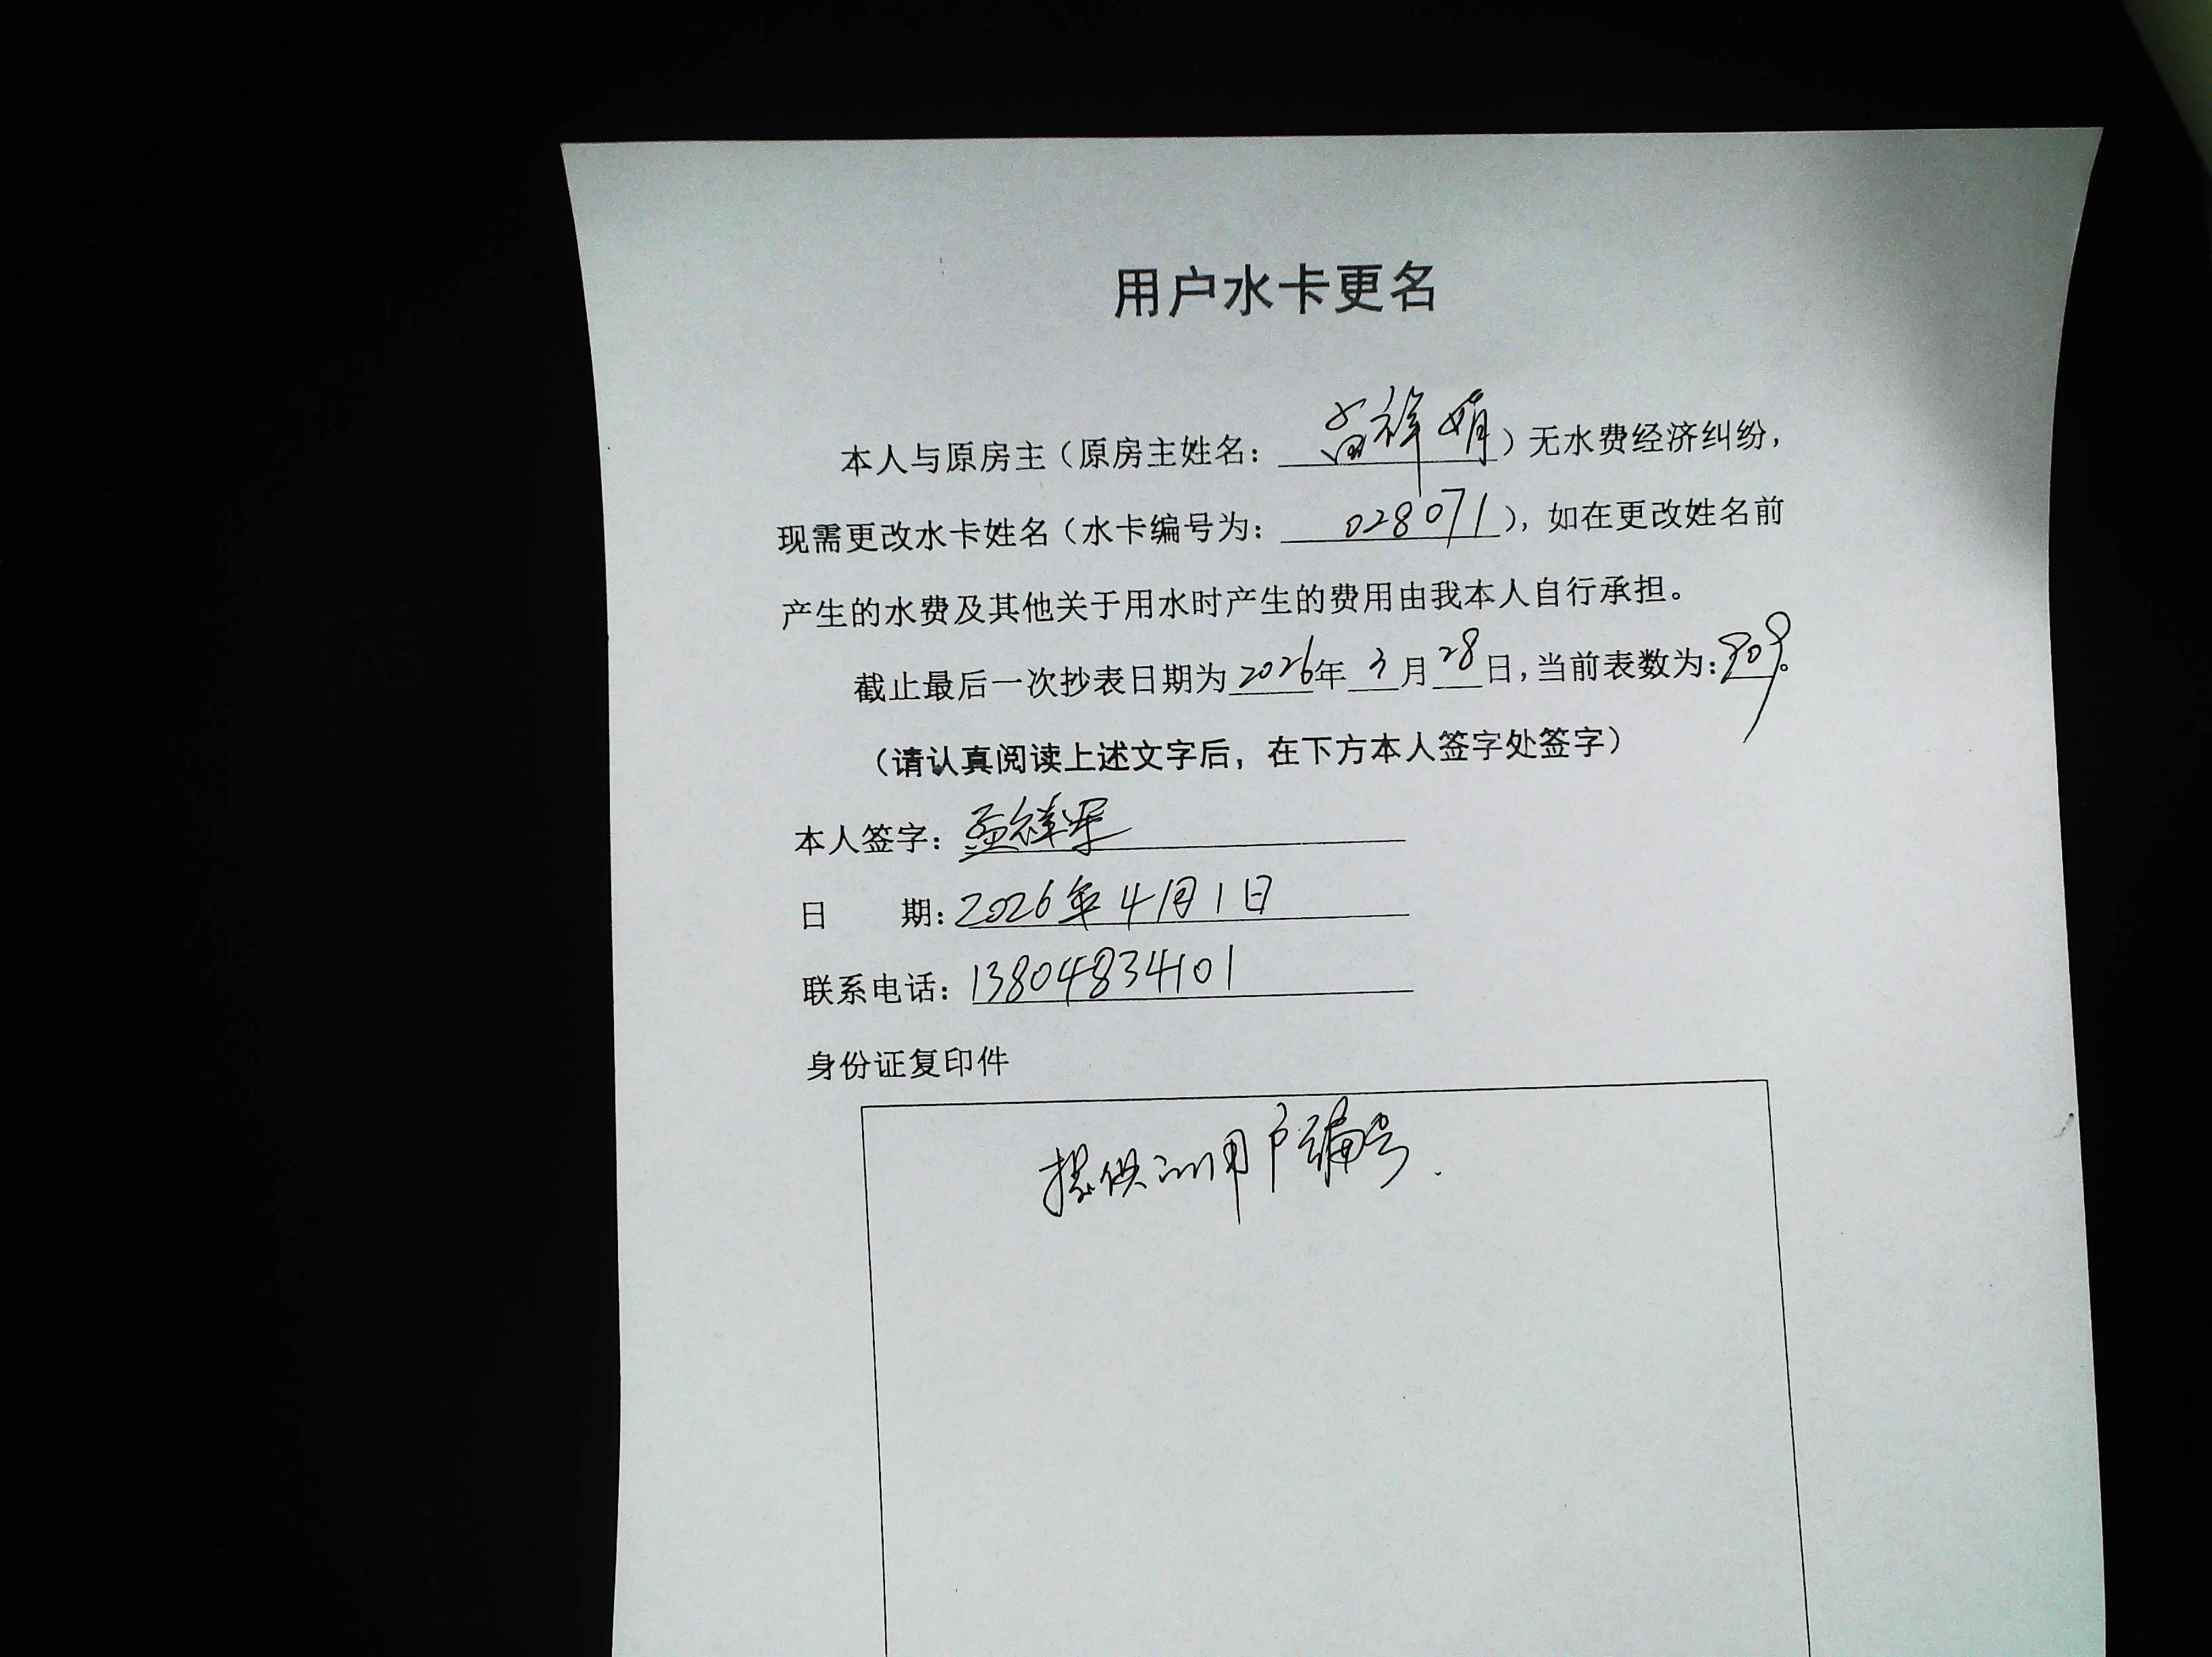 用户水卡更名
本人与原房主（原房主姓名：孟祥娟）无水费经济纠纷，
现需更改水卡姓名（水卡编号为：028071），如在更改姓名前
产生的水费及其他关于用水时产生的费用由我本人自行承担。
截止最后一次抄表日期为2026年3月28日，当前表数为：909。
（请认真阅读上述文字后，在下方本人签字处签字）
本人签字：孟祥军
日 期：2026年4月1日
联系电话：13804834101
身份证复印件
提供 用户编号.